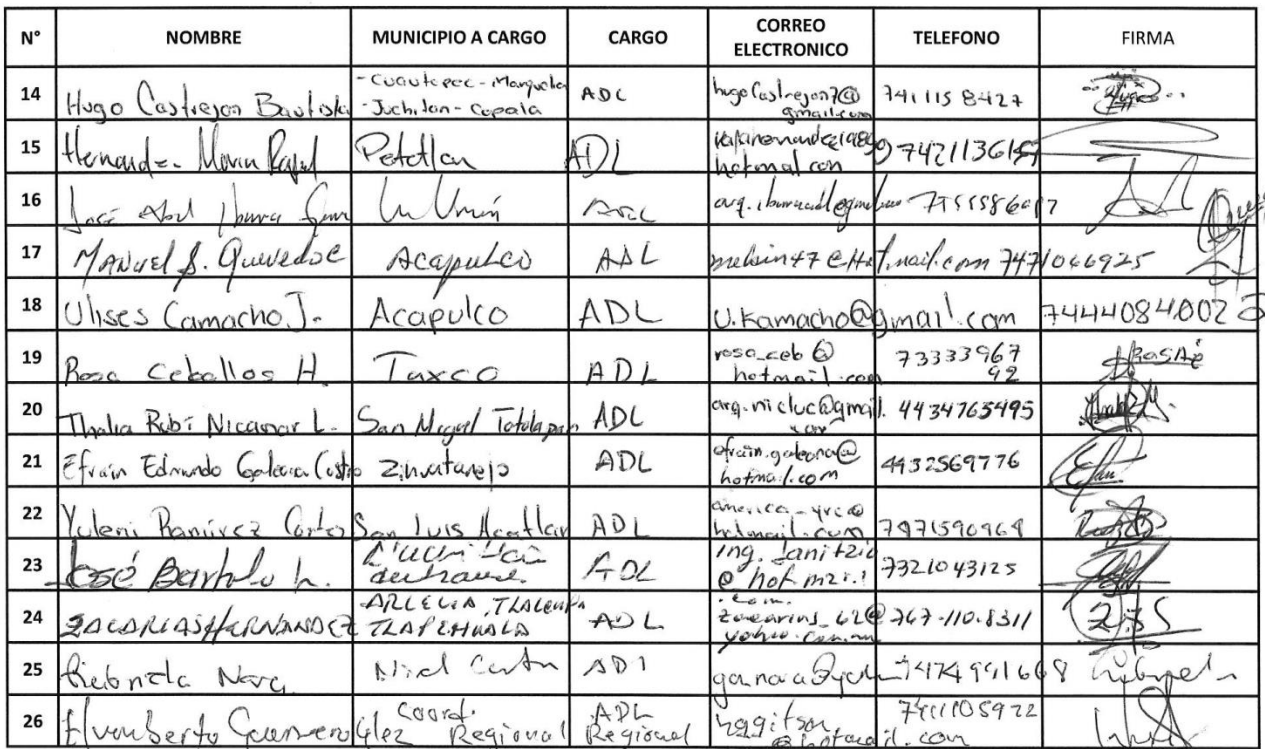 N° NOMBRE MUNICIPIO A CARGO CARGO CORREO ELECTRONICO TELEFONO FIRMA
14 Hugo Castrejon Bautista - Cuautepec - Marquelia - Juchitan - Copala ADL hugocastrejon7@gmail.com 7411158427
15 Hernandez Marin Rafael Petatlan ADL hotmail.com
16 José Abel Ibarra La Unión
17 MANUEL S. Quevedo C Acapulco ADL melsin47@Hotmail.com 7471066925
18 Ulises Camacho J. Acapulco ADL U.Kamacho@gmail.com 7444084002
19 Rosa Ceballos H. Taxco ADL rosa_ceb@hotmail.com 7333396792
20 Thalia Rubi Nicanor L. San Miguel Totolapan ADL arq.nicluc@gmail.com 4434765495
21 Efrain Edmundo Galeana Castro Zihuatanejo ADL efrain.galeana@hotmail.com 4432569776
22 Yuleni Ramirez Cortes San Luis Acatlan ADL america_yrc@hotmail.com
23 José Bartolo h. ADL ing.Janitzio@hotmail.com 7321043125
24 ZACARIAS HERNANDEZ ARCELIA, TLALCHAPA TLAPEHUALA ADL zacarias_62@yahoo.com.mx 767-110-8311
25 Nava
26 Guerrero Glez Coord. Regional ADL Regional 7411105922